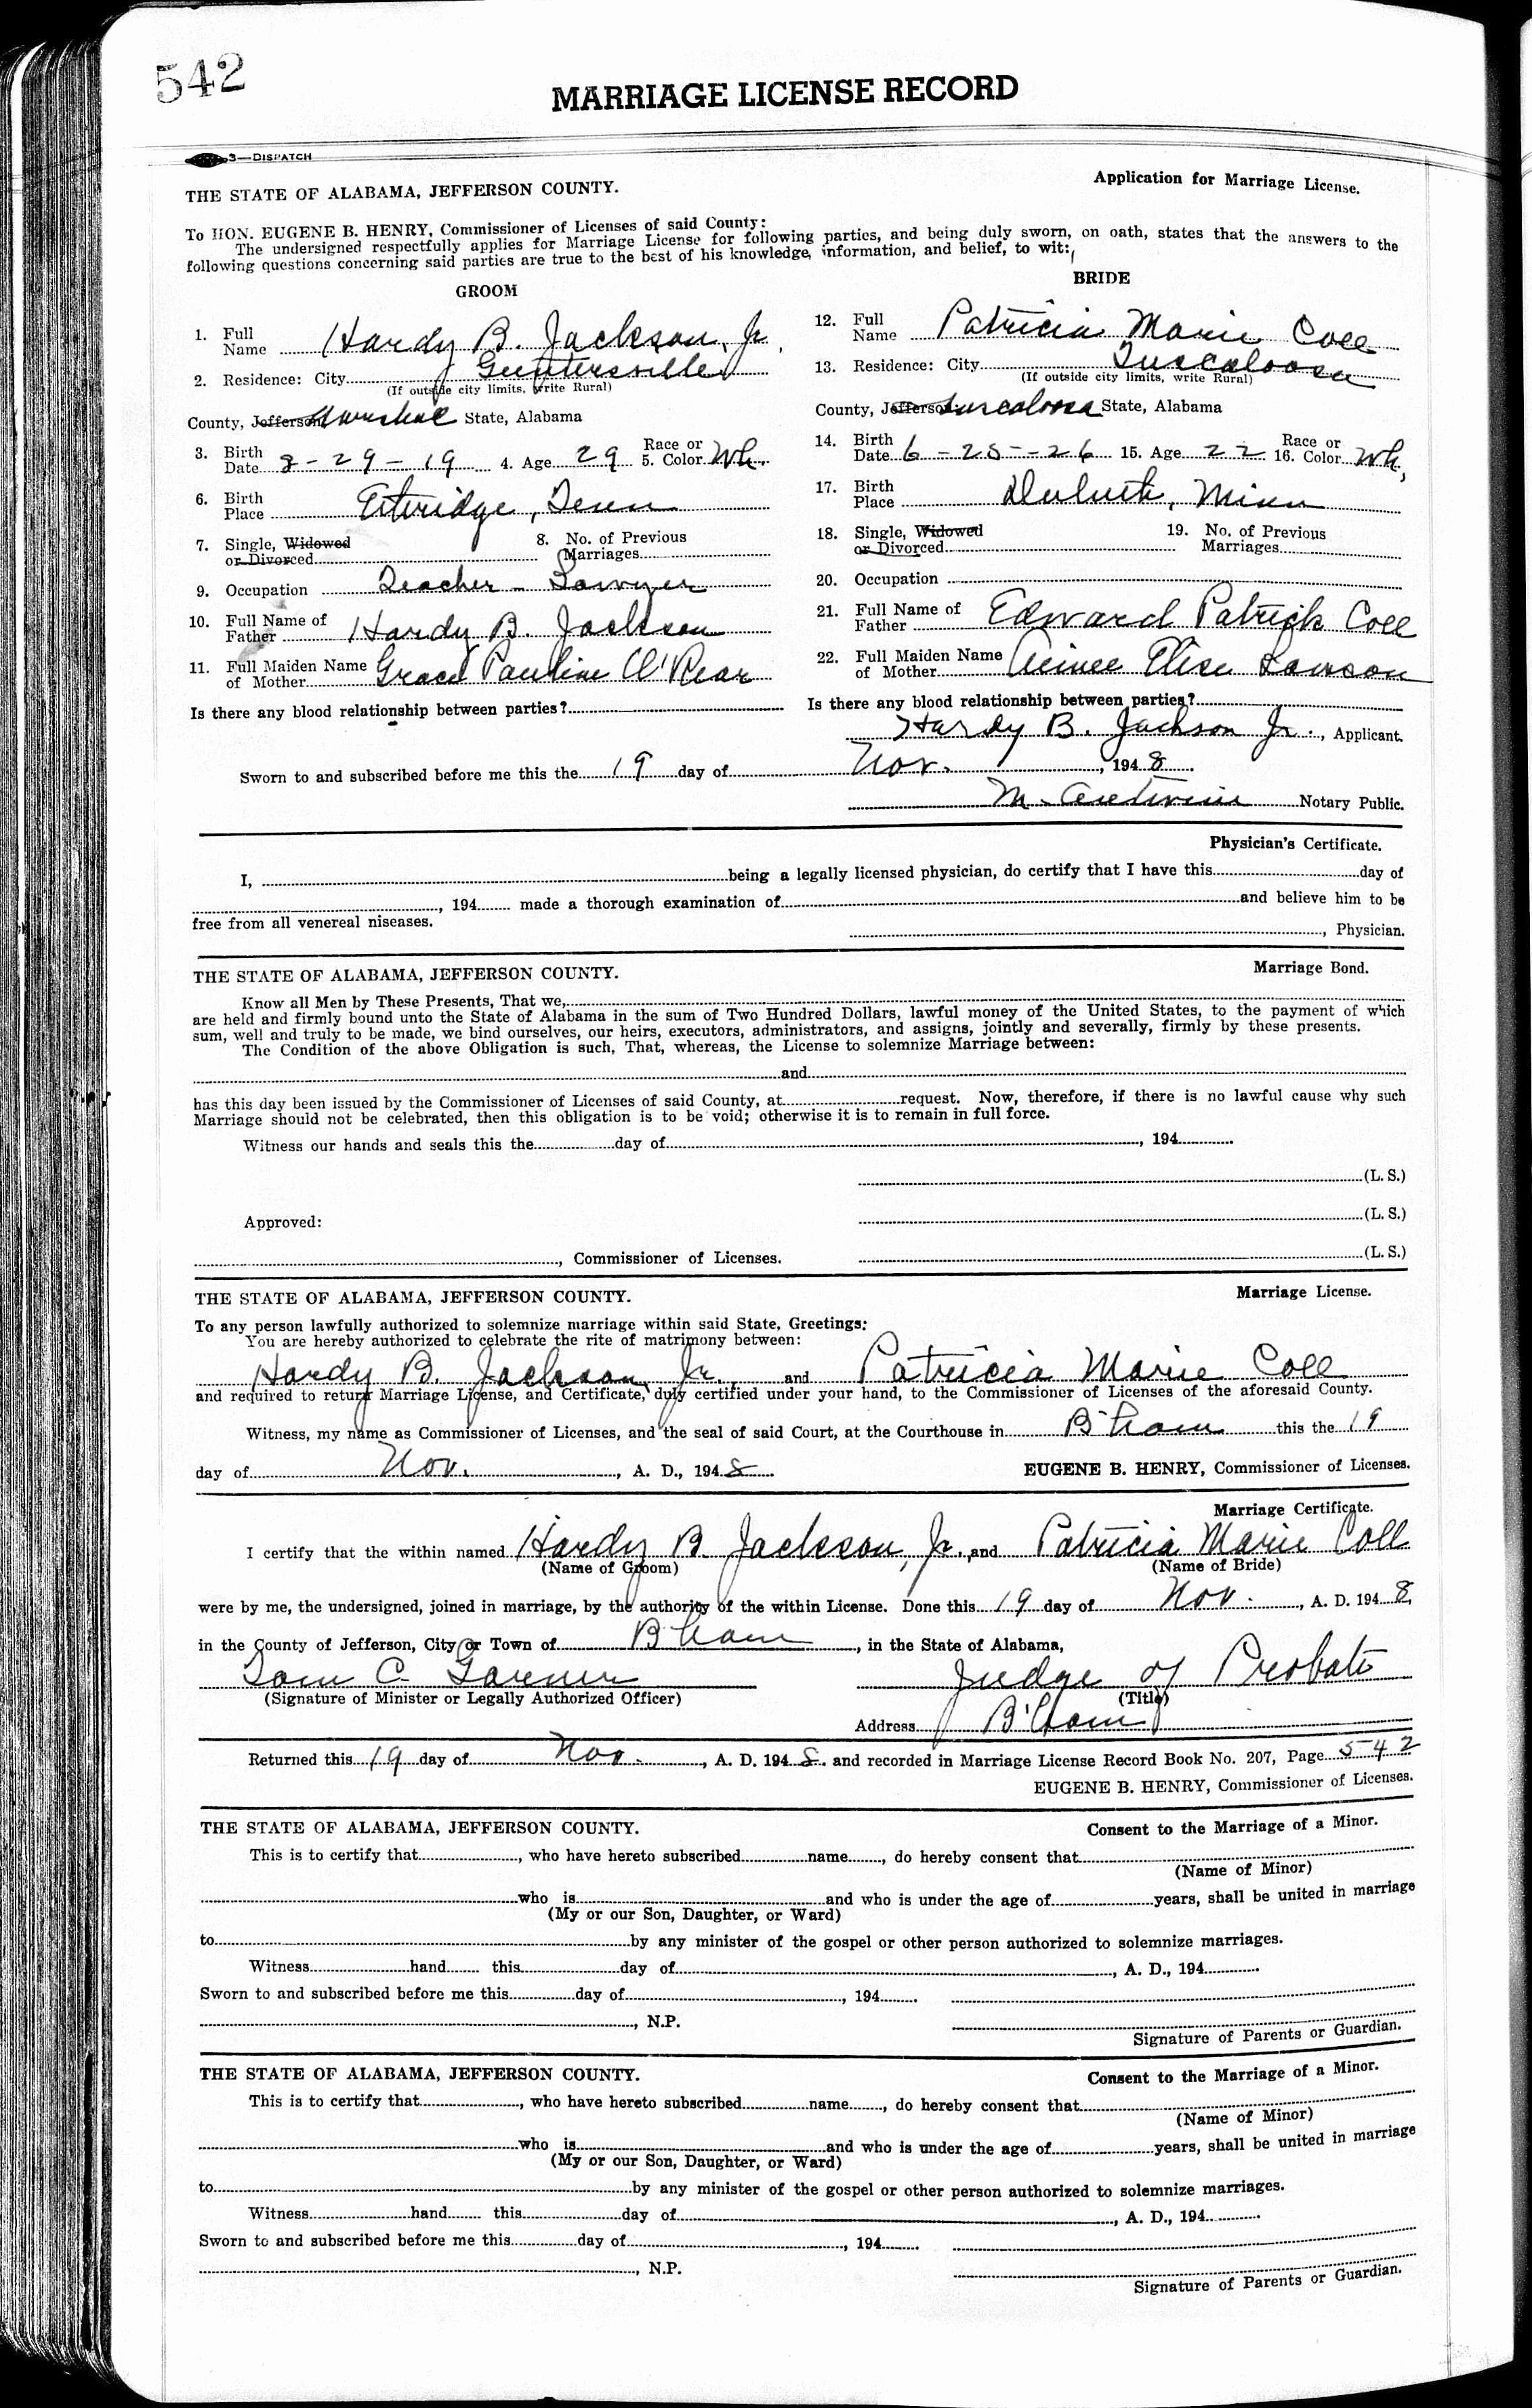 542
MARRIAGE LICENSE RECORD
3—DISPATCH
THE STATE OF ALABAMA, JEFFERSON COUNTY.
Application for Marriage License.
To HON. EUGENE B. HENRY, Commissioner of Licenses of said County:
The undersigned respectfully applies for Marriage License for following parties, and being duly sworn, on oath, states that the answers to the
following questions concerning said parties are true to the best of his knowledge, information, and belief, to wit:
GROOM
1. Full Name Hardy B. Jackson, Jr.
2. Residence: City Guntersville
(If outside city limits, write Rural)
County, Jefferson Marshal State, Alabama
3. Birth Date 8-29-19 4. Age 29 5. Race or Color Wh.
6. Birth Place Ethridge, Tenn
7. Single, Widowed or Divorced 8. No. of Previous Marriages
9. Occupation Teacher - Lawyer
10. Full Name of Father Hardy B. Jackson
11. Full Maiden Name of Mother Grace Pauline O'Rear
Is there any blood relationship between parties?
BRIDE
12. Full Name Patricia Marie Coll
13. Residence: City Tuscaloosa
(If outside city limits, write Rural)
County, Jefferson Tuscaloosa State, Alabama
14. Birth Date 6-25-26 15. Age 22 16. Race or Color Wh.
17. Birth Place Duluth, Minn
18. Single, Widowed or Divorced 19. No. of Previous Marriages
20. Occupation
21. Full Name of Father Edward Patrick Coll
22. Full Maiden Name of Mother Aimee Elise Lawson
Is there any blood relationship between parties?
Hardy B. Jackson Jr., Applicant.
Sworn to and subscribed before me this the 19 day of Nov., 1948
M. Notary Public.
Physician's Certificate.
I, being a legally licensed physician, do certify that I have this day of
, 194 made a thorough examination of and believe him to be
free from all venereal niseases.
, Physician.
THE STATE OF ALABAMA, JEFFERSON COUNTY.
Marriage Bond.
Know all Men by These Presents, That we,
are held and firmly bound unto the State of Alabama in the sum of Two Hundred Dollars, lawful money of the United States, to the payment of which
sum, well and truly to be made, we bind ourselves, our heirs, executors, administrators, and assigns, jointly and severally, firmly by these presents.
The Condition of the above Obligation is such, That, whereas, the License to solemnize Marriage between:
and
has this day been issued by the Commissioner of Licenses of said County, at request. Now, therefore, if there is no lawful cause why such
Marriage should not be celebrated, then this obligation is to be void; otherwise it is to remain in full force.
Witness our hands and seals this the day of , 194
(L. S.)
Approved: (L. S.)
, Commissioner of Licenses. (L. S.)
THE STATE OF ALABAMA, JEFFERSON COUNTY.
Marriage License.
To any person lawfully authorized to solemnize marriage within said State, Greetings:
You are hereby authorized to celebrate the rite of matrimony between:
Hardy B. Jackson, Jr., and Patricia Marie Coll
and required to return Marriage License, and Certificate, duly certified under your hand, to the Commissioner of Licenses of the aforesaid County.
Witness, my name as Commissioner of Licenses, and the seal of said Court, at the Courthouse in B'ham this the 19
day of Nov., A. D., 1948 EUGENE B. HENRY, Commissioner of Licenses.
Marriage Certificate.
I certify that the within named Hardy B. Jackson, Jr. and Patricia Marie Coll
(Name of Groom) (Name of Bride)
were by me, the undersigned, joined in marriage, by the authority of the within License. Done this 19 day of Nov., A. D. 1948,
in the County of Jefferson, City or Town of B'ham, in the State of Alabama,
Tom C. Garner Judge of Probate
(Signature of Minister or Legally Authorized Officer) (Title)
Address B'ham
Returned this 19 day of Nov., A. D. 1948 and recorded in Marriage License Record Book No. 207, Page 542
EUGENE B. HENRY, Commissioner of Licenses.
THE STATE OF ALABAMA, JEFFERSON COUNTY.
Consent to the Marriage of a Minor.
This is to certify that , who have hereto subscribed name , do hereby consent that
(Name of Minor)
who is and who is under the age of years, shall be united in marriage
(My or our Son, Daughter, or Ward)
to by any minister of the gospel or other person authorized to solemnize marriages.
Witness hand this day of , A. D., 194
Sworn to and subscribed before me this day of , 194
, N.P.
Signature of Parents or Guardian.
THE STATE OF ALABAMA, JEFFERSON COUNTY.
Consent to the Marriage of a Minor.
This is to certify that , who have hereto subscribed name , do hereby consent that
(Name of Minor)
who is and who is under the age of years, shall be united in marriage
(My or our Son, Daughter, or Ward)
to by any minister of the gospel or other person authorized to solemnize marriages.
Witness hand this day of , A. D., 194
Sworn to and subscribed before me this day of , 194
, N.P.
Signature of Parents or Guardian.